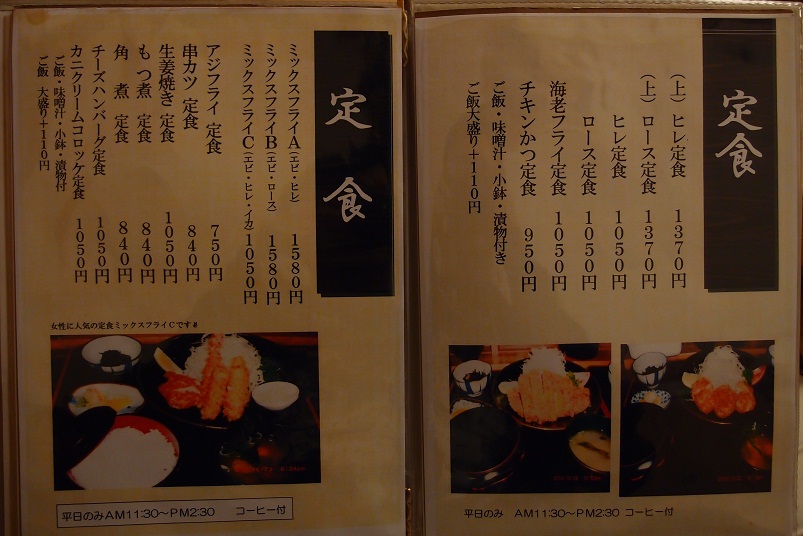 定食
(上)ヒレ定食 1370円
(上)ロース定食 1370円
ヒレ定食 1050円
ロース定食 1050円
海老フライ定食 1050円
チキンかつ定食 950円
ご飯・味噌汁・小鉢・漬物付き
ご飯大盛り+110円
平日のみ AM11:30〜PM2:30 コーヒー付
定食
ミックスフライA(エビ・ヒレ) 1580円
ミックスフライB(エビ・ロース) 1580円
ミックスフライC(エビ・ヒレ・イカ) 1050円
アジフライ 定食 750円
串カツ 定食 840円
生姜焼き 定食 1050円
もつ煮 定食 840円
角 煮 定食 840円
チーズハンバーグ定食 1050円
カニクリームコロッケ定食 1050円
ご飯・味噌汁・小鉢・漬物付
ご飯 大盛り+110円
女性に人気の定食ミックスフライCです
平日のみAM11:30〜PM2:30 コーヒー付